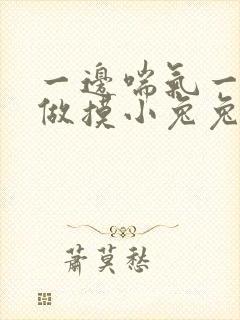 一邊喘氣一
做摸小兔兔
蕭莫愁